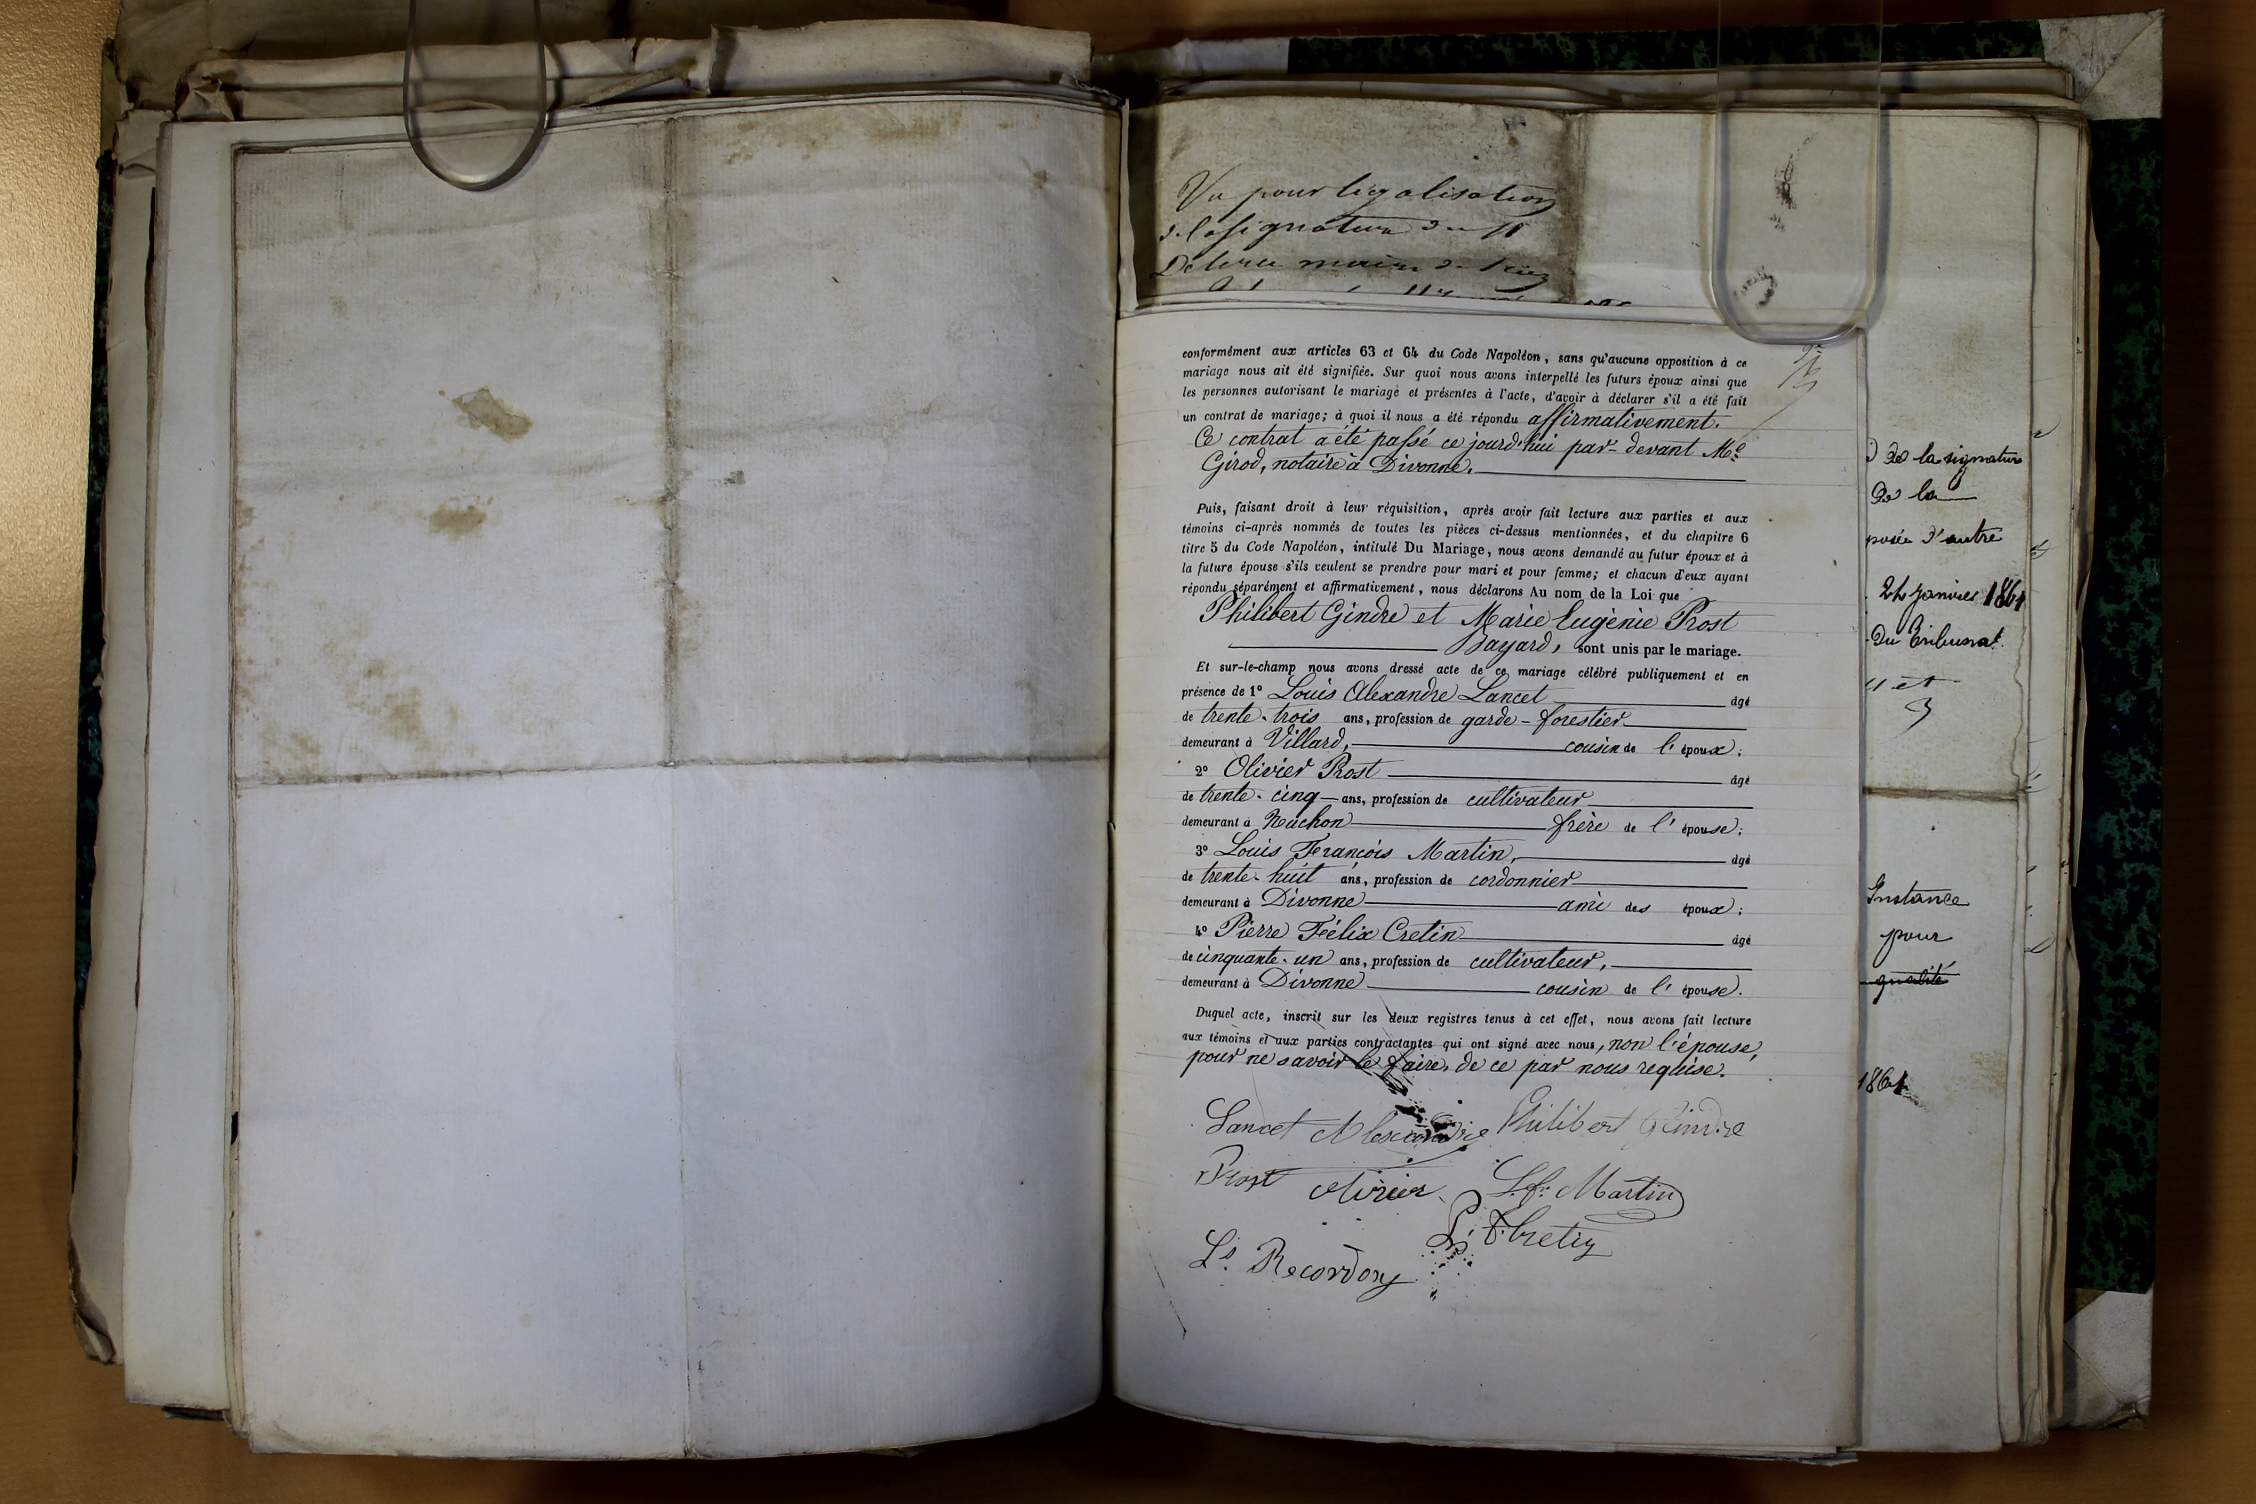 Vu pour légalisation
de la signature du
maire de
conformément aux articles 63 et 64 du Code Napoléon, sans qu'aucune opposition à ce
mariage nous ait été signifiée. Sur quoi nous avons interpellé les futurs époux ainsi que
les personnes autorisant le mariage et présentes à l'acte, d'avoir à déclarer s'il a été fait
un contrat de mariage; à quoi il nous a été répondu affirmativement.
Ce contrat a été passé ce jourd'hui par-devant Me
Girod, notaire à Divonne.
Puis, faisant droit à leur réquisition, après avoir fait lecture aux parties et aux
témoins ci-après nommés de toutes les pièces ci-dessus mentionnées, et du chapitre 6
titre 5 du Code Napoléon, intitulé Du Mariage, nous avons demandé au futur époux et à
la future épouse s'ils veulent se prendre pour mari et pour femme; et chacun d'eux ayant
répondu séparément et affirmativement, nous déclarons Au nom de la Loi que
Philibert Gindre et Marie Eugénie Prost
Bayard, sont unis par le mariage.
Et sur-le-champ nous avons dressé acte de ce mariage célébré publiquement et en
présence de 1° Louis Alexandre Lancet âgé
de trente-trois ans, profession de garde-forestier
demeurant à Villard, cousin de l'époux;
2° Olivier Prost âgé
de trente-cinq ans, profession de cultivateur
demeurant à frère de l'épouse;
3° Louis François Martin, âgé
de trente-huit ans, profession de cordonnier
demeurant à Divonne ami des époux;
4° Pierre Félix Cretin âgé
de cinquante-un ans, profession de cultivateur,
demeurant à Divonne cousin de l'épouse.
Duquel acte, inscrit sur les deux registres tenus à cet effet, nous avons fait lecture
aux témoins et aux parties contractantes qui ont signé avec nous, non l'épouse,
pour ne savoir le faire, de ce par nous requise.
Lancet Alexandre Philibert Gindre
Prost Olivier L. f. Martin
P. F. Cretin
Ls. Recordon
de la signature
de la
posée d'autre
24 janvier 1861
du Tribunal
et
Instance
pour
qualité
1861